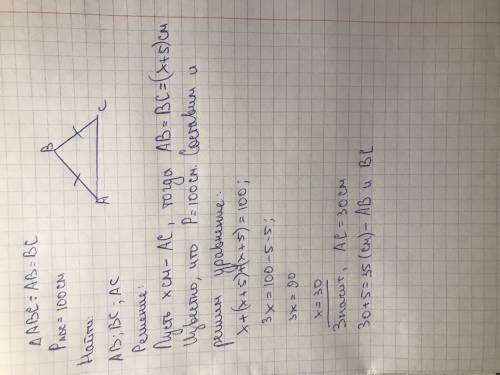 △ABC: AB=BC
P ABC = 100см
Найти:
AB; BC; AC
B
A
C
Решение:
Пусть x см - AC, тогда AB=BC=(x+5)см
Извегно, что P=100см. Составим и
решим уравнение:
x+(x+5)+(x+5)=100;
3x=100-5-5;
3x=90
x=30
Значит, AC=30см
30+5=35(см)-AB и BC